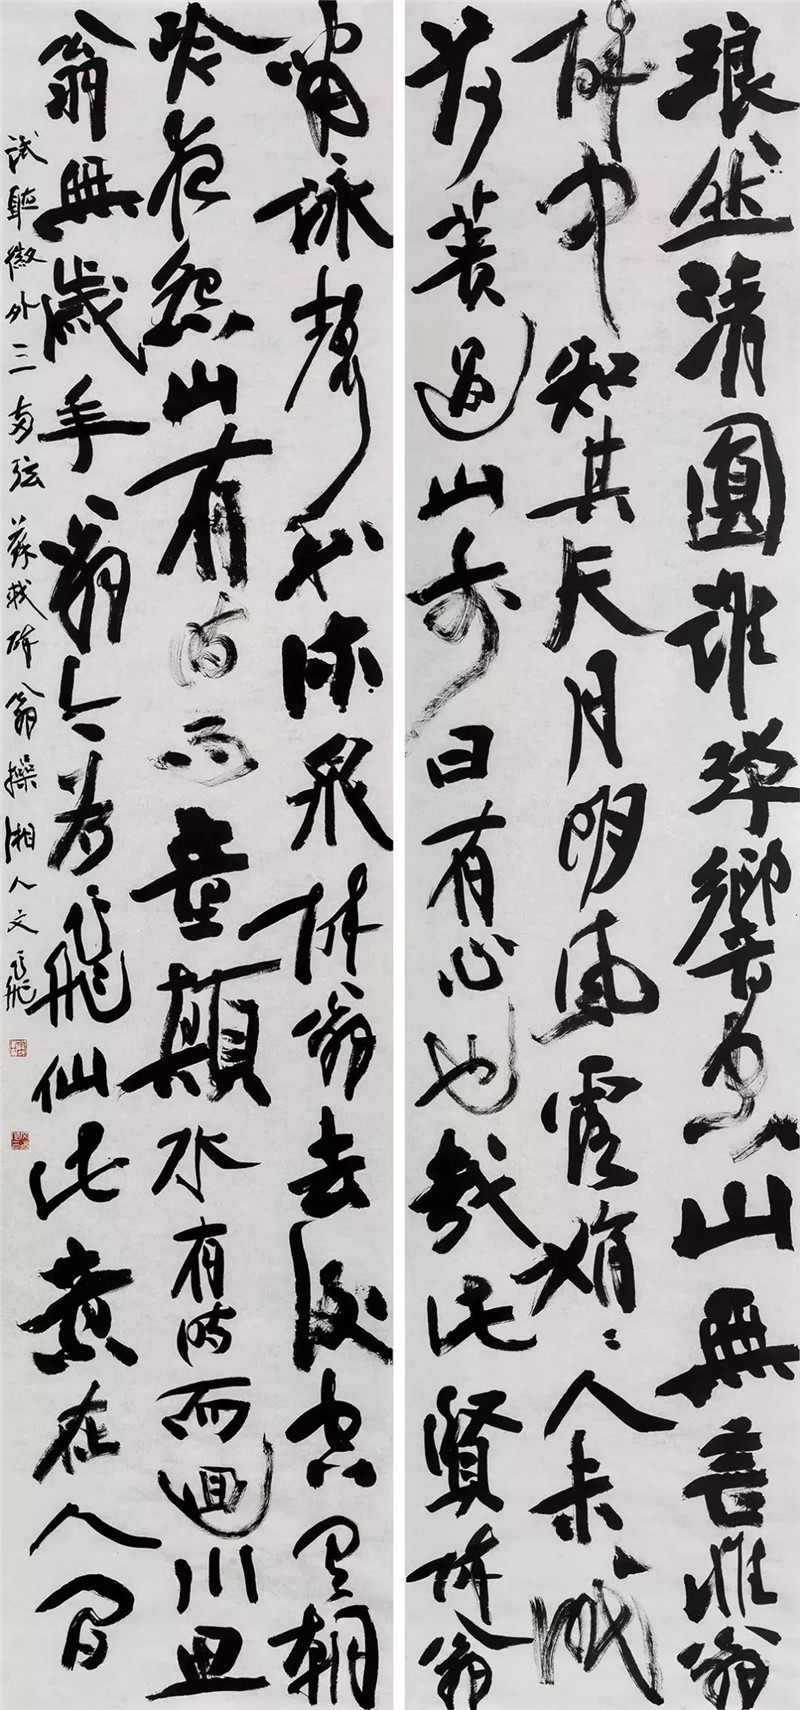 琅然清圓誰弹響空山無言惟翁
醉中知其天月明風露娟〻人未眠
荷蕢過山前曰有心也哉此賢醉翁
嘯詠聲和流泉醉翁去後空有朝
吟夜怨山有時而童顛水有時而迴川思
翁無歲年翁今為飛仙此意在人間
試聽徽外三两弦蘇軾醉翁操湘人文飛